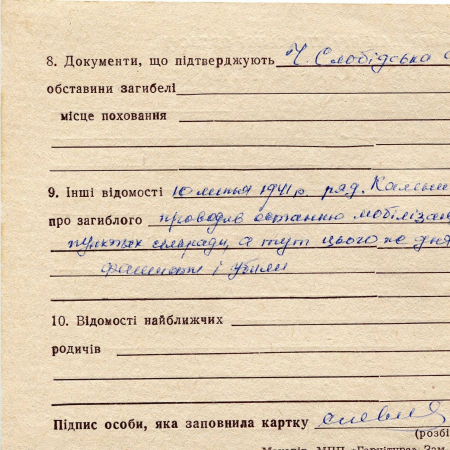 8. Документи, що підтверджують Ч. Слобідська
обставини загибелі
місце поховання
9. Інші відомості 10 липня 1941 р. ряд.
про загиблого проводив останню мобілізац
пунктах а тут цього не дня
фашисти і убили
10. Відомості найближчих
родичів
Підпис особи, яка заповнила картку
(розбі